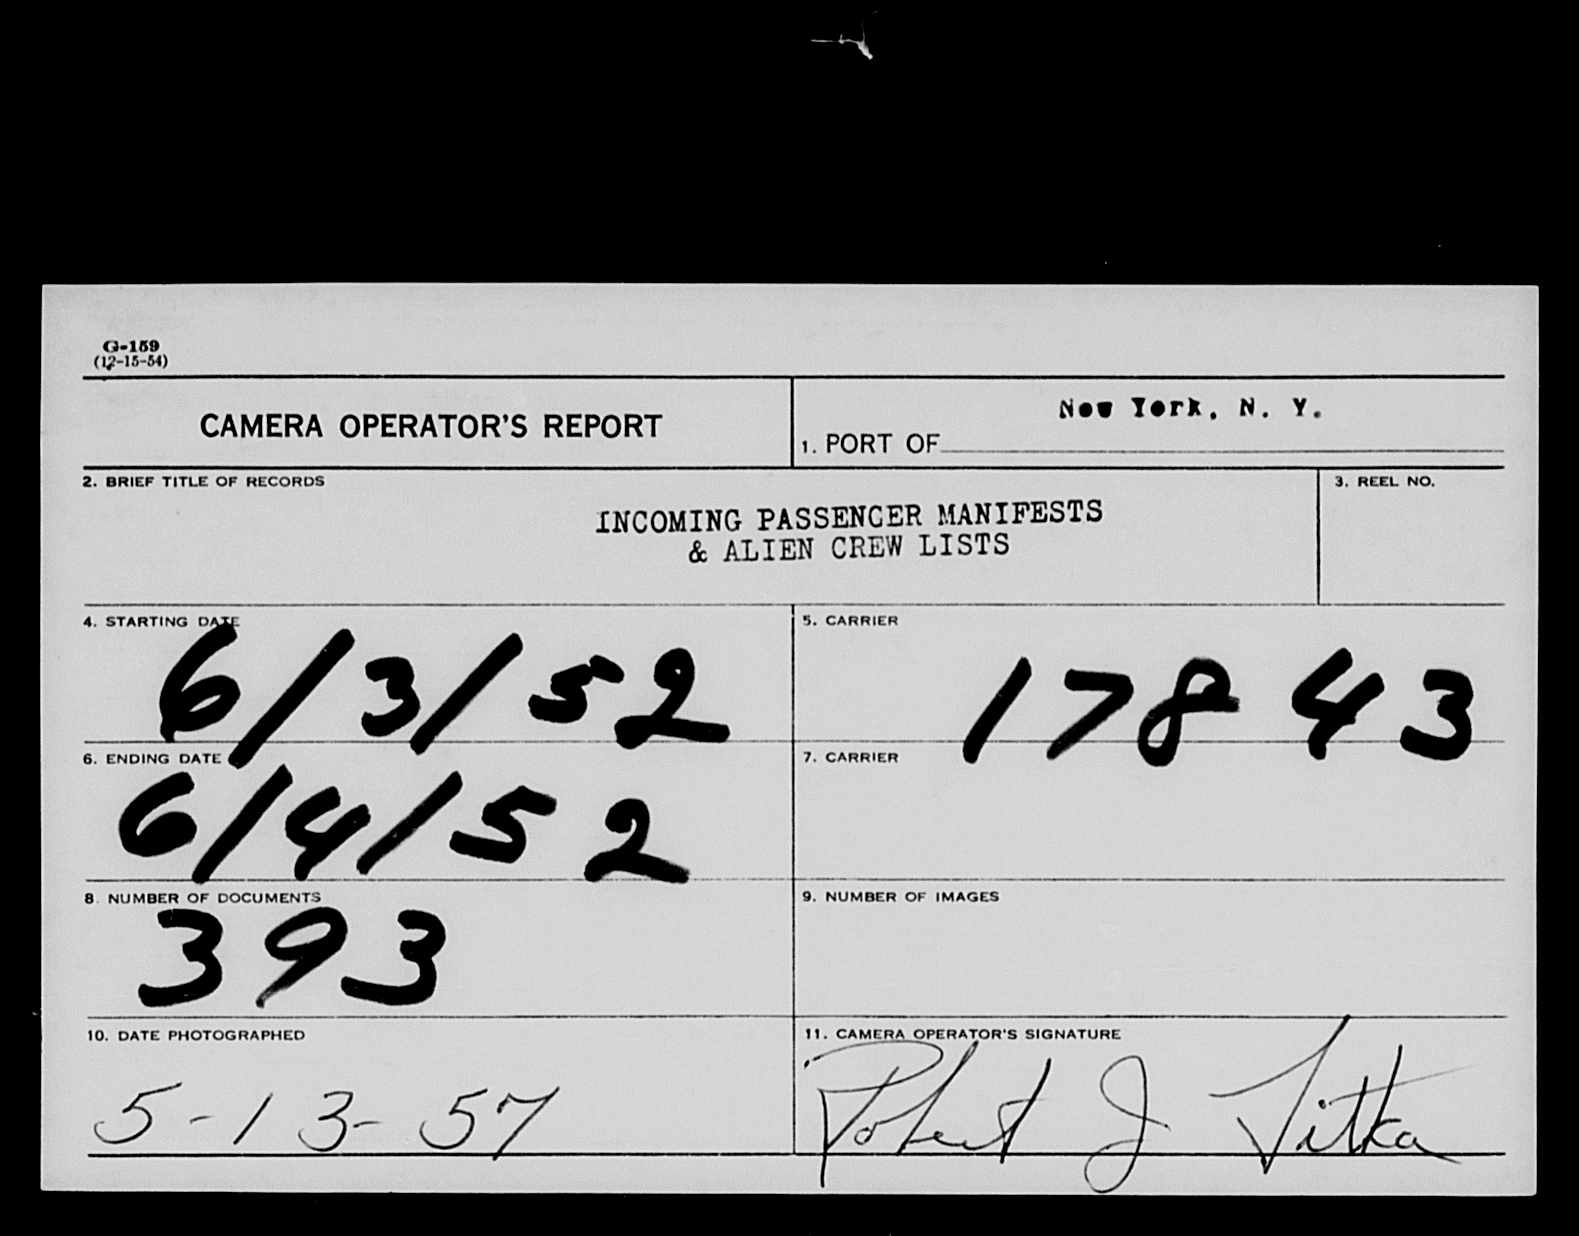 G-159
(12-15-54)
CAMERA OPERATOR'S REPORT
New York, N. Y.
1. PORT OF
2. BRIEF TITLE OF RECORDS
3. REEL NO.
INCOMING PASSENGER MANIFESTS
& ALIEN CREW LISTS
4. STARTING DATE
6/3/52
5. CARRIER
17843
6. ENDING DATE
6/4/52
7. CARRIER
8. NUMBER OF DOCUMENTS
393
9. NUMBER OF IMAGES
10. DATE PHOTOGRAPHED
5-13-57
11. CAMERA OPERATOR'S SIGNATURE
Robert J